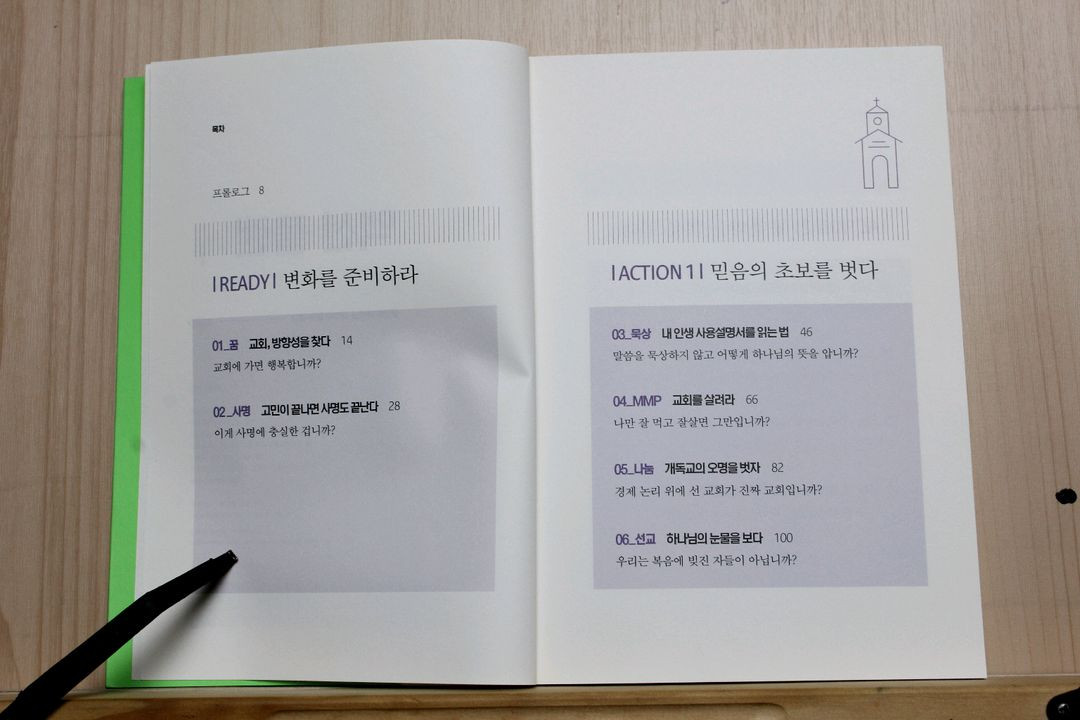 목차
프롤로그 8
| READY | 변화를 준비하라
01_꿈 교회, 방향성을 찾다 14
교회에 가면 행복합니까?
02_사명 고민이 끝나면 사명도 끝난다 28
이게 사명에 충실한 겁니까?
| ACTION 1 | 믿음의 초보를 벗다
03_묵상 내 인생 사용설명서를 읽는 법 46
말씀을 묵상하지 않고 어떻게 하나님의 뜻을 압니까?
04_MMP 교회를 살려라 66
나만 잘 먹고 잘살면 그만입니까?
05_나눔 개독교의 오명을 벗자 82
경제 논리 위에 선 교회가 진짜 교회입니까?
06_선교 하나님의 눈물을 보다 100
우리는 복음에 빚진 자들이 아닙니까?